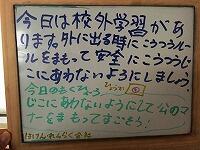 今日は校外学習があ
ります。外に出る時にこうつうルー
ルをまもって安全にこうつうじ
こにあわないようにしましょう。
今日のもくひょう
じこにあわないようにして公のマ
ナーをまもってすごそう!
ほけんれんらく会社